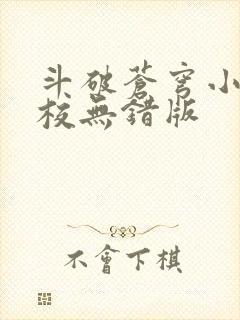 斗破蒼穹小
校無錯版
不會下棋